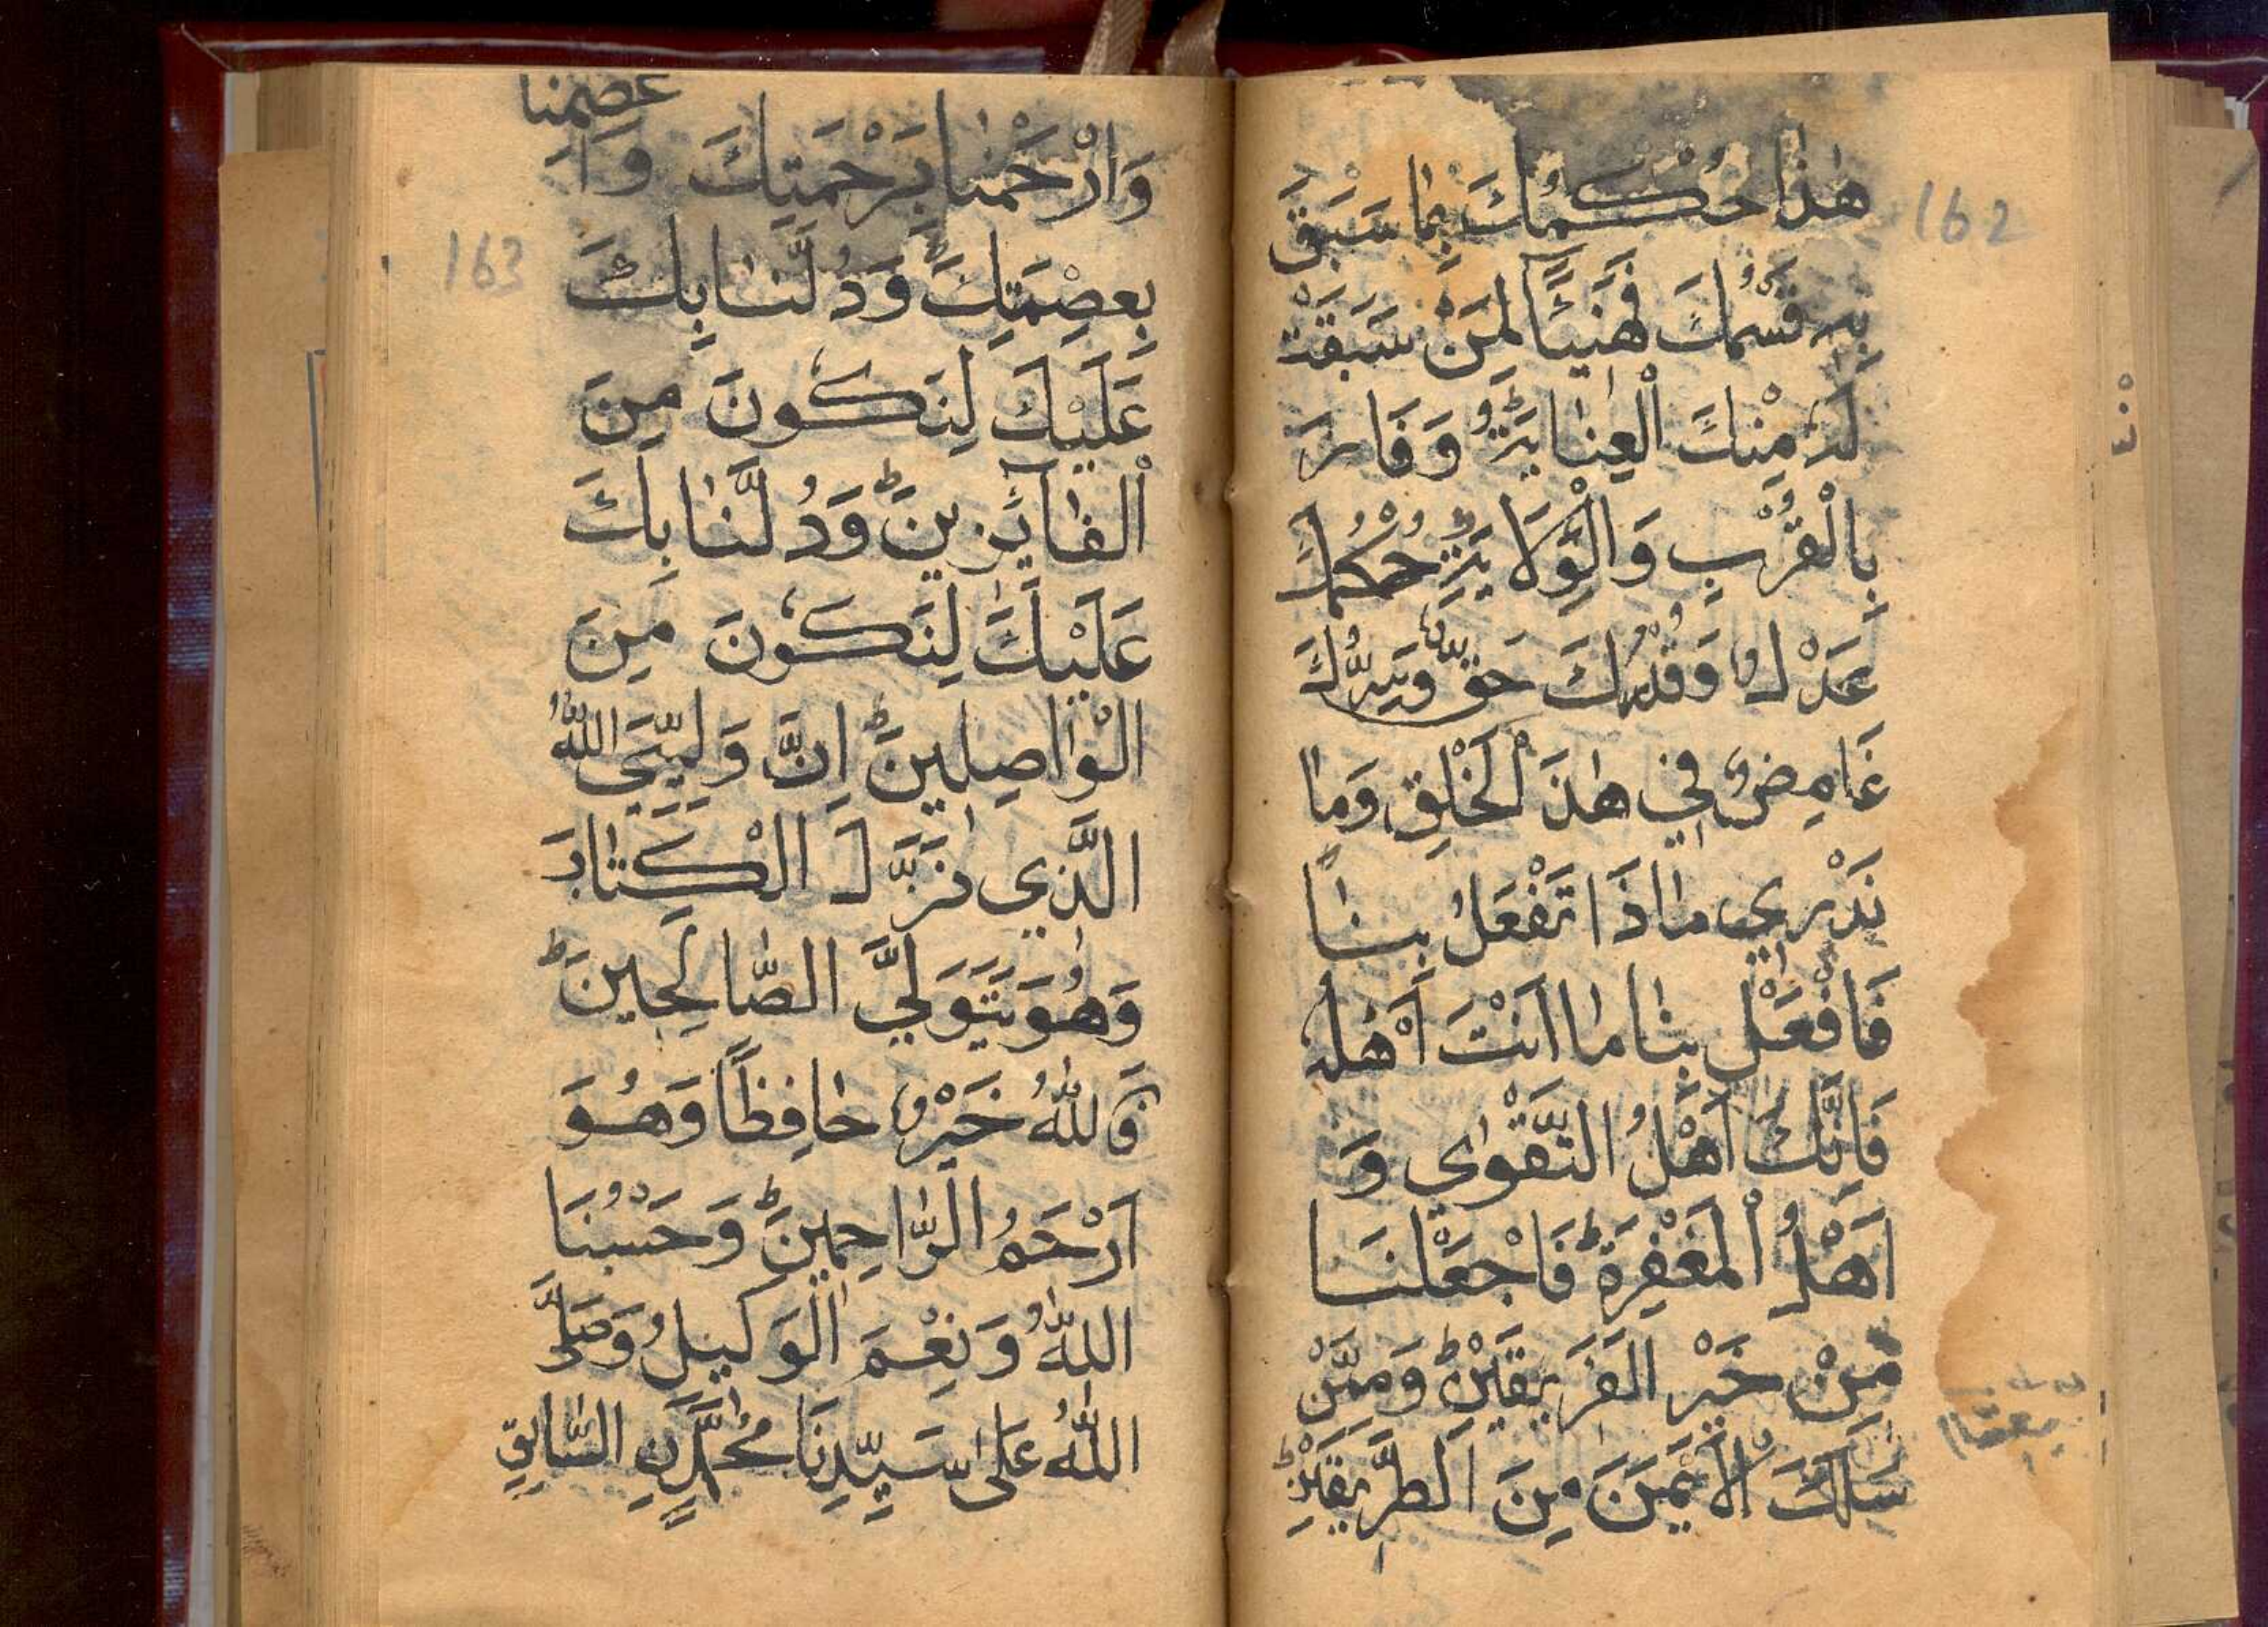 162
هٰذَا حُكْمُكَ بِمَا سَبَقَ
بِهِ قَسْمُكَ فَهَنِئًا لِمَنْ سَبَقَتْ
لَهُ مِنْكَ الْعِنَايَةُ وَفَازَ
بِالْقُرْبِ وَالْوِلَايَةِ حُكْمُكَ
عَدْلٌ وَقَدْرُكَ حَقٌّ وَسِرُّكَ
غَامِضٌ فِي هٰذَ الْخَلْقِ وَمَا
نَدْرِي مَاذَا تَفْعَلُ بِنَا
فَافْعَلْ بِنَا مَا اَنْتَ اَهْلُهُ
فَاِنَّكَ اَهْلُ التَّقْوٰى وَ
اَهْلُ الْمَغْفِرَةِ فَاجْعَلْنَا
مِنْ خَيْرِ الْفَرِيقَيْنِ وَمِمَّنْ
سَلَكَ الْاَيْمَنَ مِنَ الطَّرِيقَيْنِ
163
وَارْحَمْنَا بِرَحْمَتِكَ وَاَ
عصمنا
بِعِصْمَتِكَ وَدُلَّنَا بِكَ
عَلَيْكَ لِنَكُونَ مِنَ
الْفَآئِزِينَ وَدُلَّنَا بِكَ
عَلَيْكَ لِنَكُونَ مِنَ
الْوَاصِلِينَ اِنَّ وَلِيِّيَ اللهُ
الَّذِي نَزَّلَ الْكِتَابَ
وَهُوَ يَتَوَلَّى الصَّالِحِينَ
فَاللهُ خَيْرٌ حَافِظًا وَهُوَ
اَرْحَمُ الرَّاحِمِينَ وَحَسْبُنَا
اللهُ وَنِعْمَ الْوَكِيلُ وَصَلَّى
اللهُ عَلٰى سَيِّدِنَا مُحَمَّدٍنِ السَّابِقِ